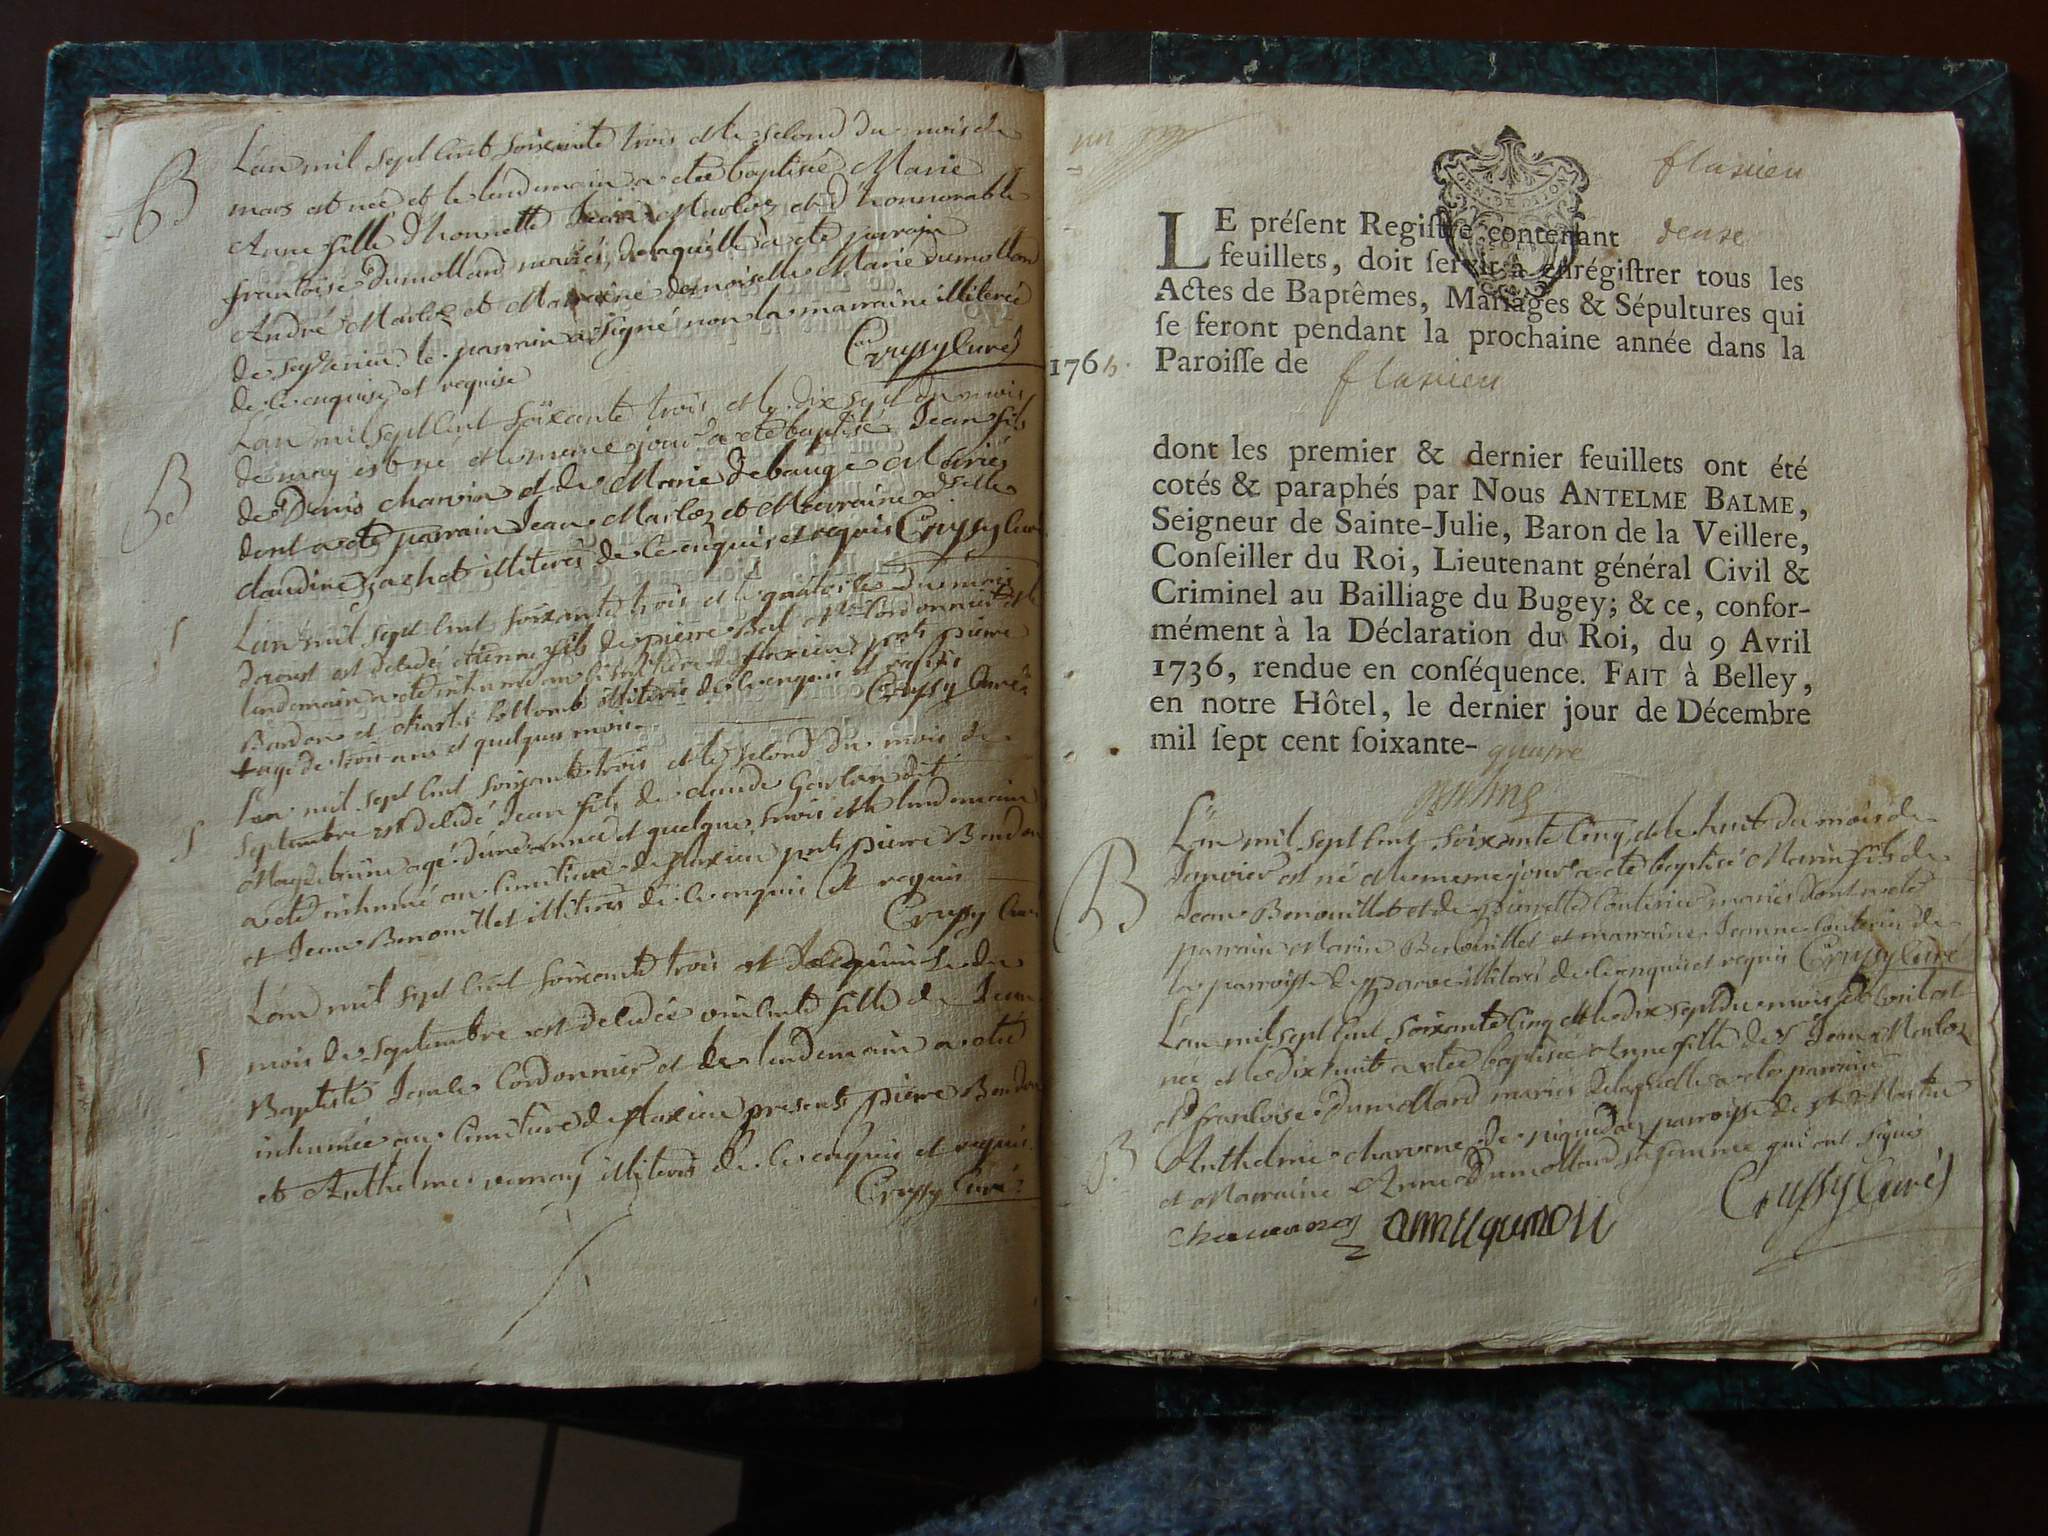 L'an mil sept cent soixante trois et le second du mois de
mars est née et le lendemain a etée baptisée Marie
Anne fille d'honnette Jean Marloz et d'honnorable
françoise Dumollard mariés, de laquelle a ete parrain
André Marloz et Marraine demoiselle Marie dumollard
de le parrain a signé non la marraine illiterée
de ce enquise et requise
Crussy Curé
B
L'an mil sept cent soixante trois et le dix sept du mois
de may est né et le meme jour a ete baptisé Jean fils
de Denis charvin et de Marie Debauge mariés
dont a ete parrain Jean Marloz et Marraine d.elle
claudine illiterés de ce enquis et requis Crussy Curé
B
L'an mil sept cent soixante trois et le quatorze du mois
d'aoust est decedé etienne fils de pierre Bal Me Cordonnier et le
lendemain a ete inhumé au cimetiere de flaxieu pnts pierre
Bondon et charles collomb illiterés de ce enquis et requis
agé de trois ans et quelques mois Crussy Curé
S
L'an mil sept cent soixante trois et le second du mois de
septembre est decedé Jean fils de claude Gorlan dit
agé d'une année et quelques mois et le lendemain
a ete inhumé au cimetiere de flaxieu pnts pierre Bondon
et Jean Benouillet illiterés de ce enquis et requis
Crussy Curé
S
L'an mil sept cent soixante trois et le quinze du
mois de septembre est decedée vincente fille de Jean
Baptiste Cordonnier et le lendemain a ete
inhumée au cimetiere de flaxieu presents pierre Bondon
et Anthelme vernay illiterés de ce enquis et requis
Crussy Curé
S
flaxieu
LE préſent Regiſtre contenant deuse
feuillets, doit ſervir à enrégiſtrer tous les
Actes de Baptêmes, Mariages & Sépultures qui
ſe feront pendant la prochaine année dans la
1765. Paroiſſe de flaxieu
dont les premier & dernier feuillets ont été
cotés & paraphés par Nous ANTELME BALME,
Seigneur de Sainte-Julie, Baron de la Veillere,
Conſeiller du Roi, Lieutenant général Civil &
Criminel au Bailliage du Bugey; & ce, confor-
mément à la Déclaration du Roi, du 9 Avril
1736, rendue en conſéquence. FAIT à Belley,
en notre Hôtel, le dernier jour de Décembre
mil ſept cent ſoixante- quatre
Balme
L'an mil sept cent soixante Cinq et le huit du mois de
Janvier est né et le meme jour a ete baptisé Marin fils de
Jean Benouillet et de pierrette Conterin mariés dont a ete
parrain Marin Benouillet et marraine Jeanne Conterin de
la parroisse de parve illiterés de ce enquis et requis Crussy Curé
B
L'an mil sept cent soixante Cinq et le dix sept du mois d'avril est
née et le dix huit a etée baptisée Anne fille de Sr Jean Marloz
et françoise Dumollard mariés de laquelle a ete parrain
Anthelme charvene de parroisse de St Martin
et Marraine Anne Dumollard sa femme qui ont signés
B
Crussy Curé